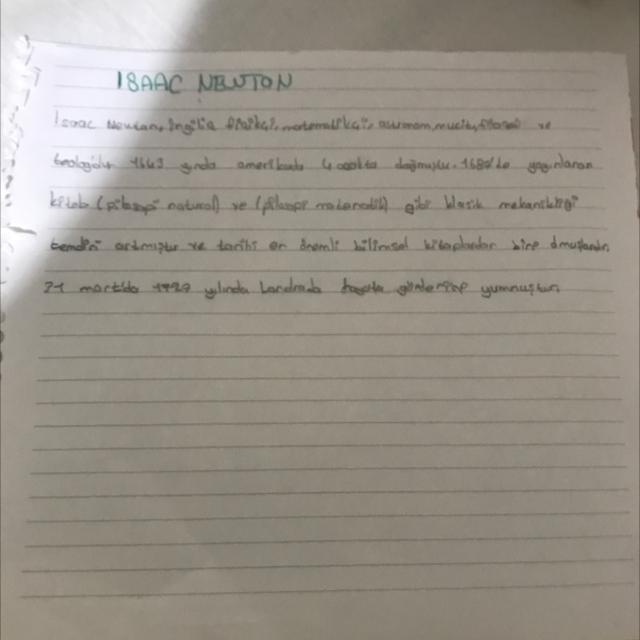 ISAAC NEWTON
Isaac Newton, İngiliz fizikçi, matematikçi, astronom, mucit, filozof ve
teologdur 1643 yında amerikada 4 ocakta doğmuştu. 1687'de yayınlanan
kitab (filozopi natural) ve (filozopi matematik) gibi klasik mekaniği
temelini atmıştır ve tarihi en önemli bilimsel kitaplardan biri olmuştur.
21 martda yılında Londrada hayata gözlerini yummuştur.